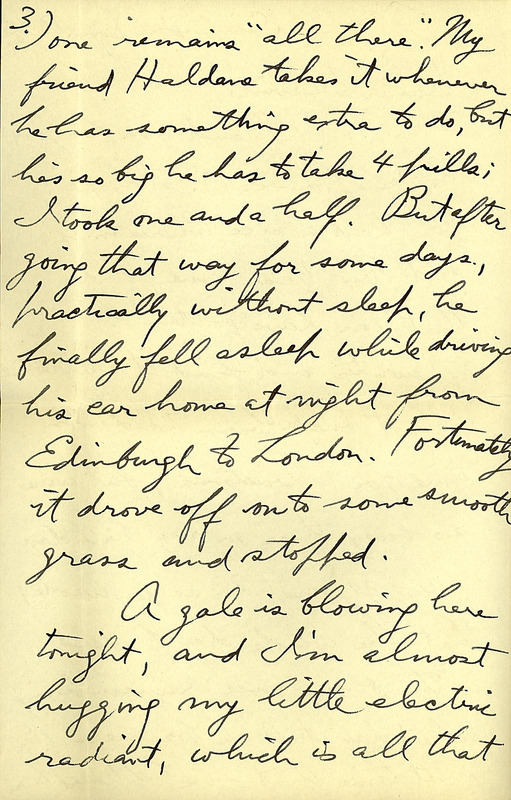 3.) one remains "all there". My
friend Haldane takes it whenever
he has something extra to do, but
he's so big he has to take 4 pills;
I took one and a half. But after
going that way for some days,
practically without sleep, he
finally fell asleep while driving
his car home at night from
Edinburgh to London. Fortunately
it drove off onto some smooth
grass and stopped.
A gale is blowing here
tonight, and I'm almost
hugging my little electric
radiant, which is all that